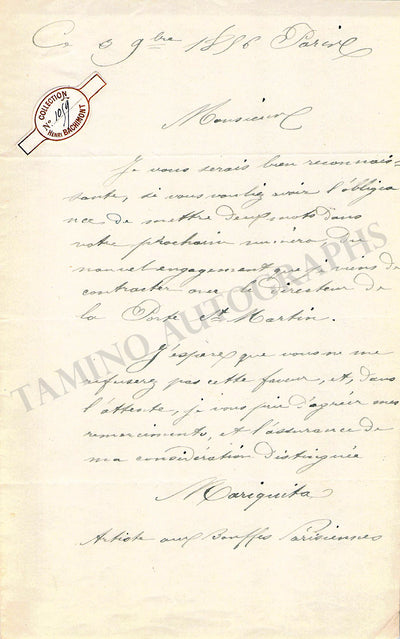 Ce 9 9bre 1856 Paris
COLLECTION
No. 1019
HENRI BACHIMONT
Monsieur
Je vous serais bien reconnais-
sante, si vous vouliez avoir l'obligea
nce de mettre deux mots dans
votre prochain numéro du
nouvel engagement que je viens de
contracter avec le directeur de
la Porte St Martin.
J'espère que vous ne me
refuserez pas cette faveur, et, dans
l'attente, je vous prie d'agréer mes
remerciments, et l'assurance de
ma considération distinguée
Mariquita
Artiste aux Bouffes Parisiennes
TAMINO AUTOGRAPHS